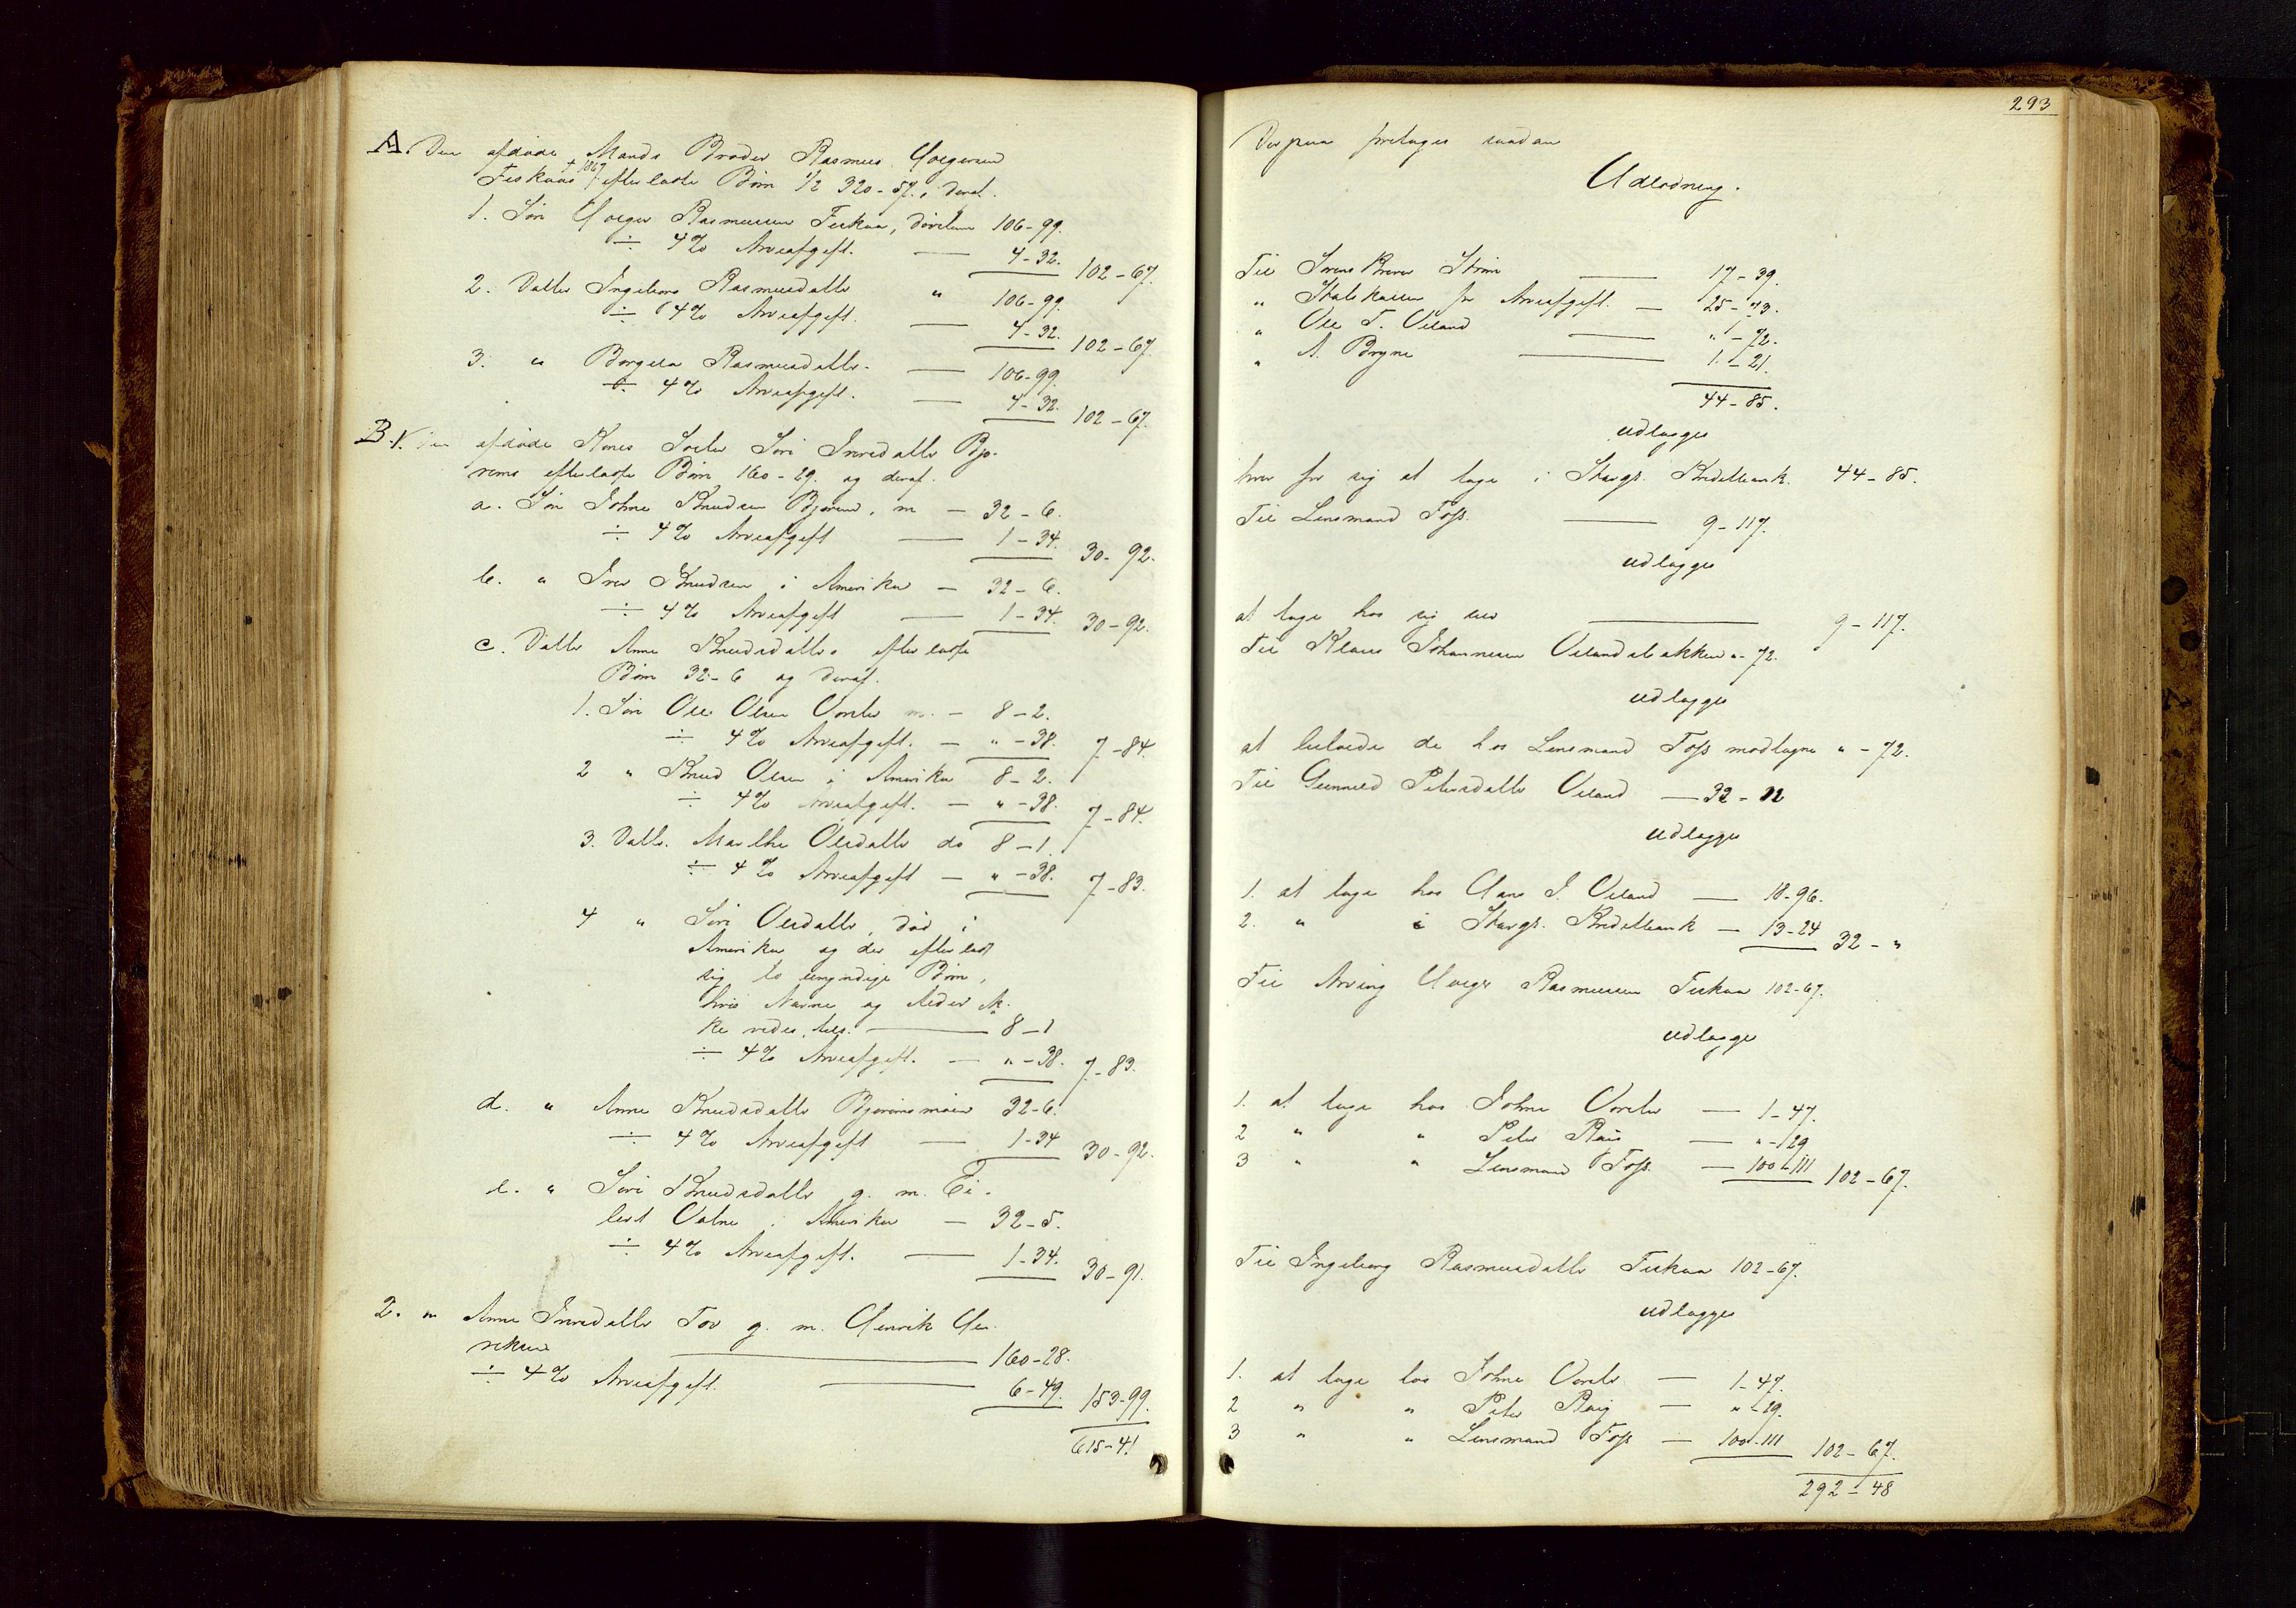 A. Den afdøde Mands Broder Rasmus Holgersen
Feskaas + 1867 efterladte Børn 1/2 320-57., deraf.
1. Søn Holger Rasmussen Feskaa, 106-99.
÷ 4% Arveafgift. — 4-32. 102-67.
2. Datter Ingeborg Rasmusdatter " 106-99.
÷ 4% Arveafgift. — 4-32. 102-67.
3. " Borgila Rasmusdatter. — 106-99.
÷ 4% Arveafgift. — 4-32. 102-67.
B. 1. Den afdøde Kones Søster Siri Iversdatter Bjø-
rems efterladte Børn 160-29. og deraf.
a. Søn Johne Knudsen Bjørem, m — 32-6.
÷ 4% Arveafgift — 1-34. 30-92.
b. " Iver Knudsen i Amerika — 32-6.
÷ 4% Arveafgift — 1-34. 30-92.
c. Datter Anne Knudsdatters efterladte
Børn 32-6 og deraf.
1. Søn Ole Olsen m. — 8-2.
÷ 4% Arveafgift. — "-38. 7-84.
2 " Knud Olsen i Amerika 8-2.
÷ 4% Arveafgift. — "-38. 7-84.
3. Datter. Marthe Olsdatter do 8-1.
÷ 4% Arveafgift — "-38. 7-83.
4 " Siri Olsdatter, død i
Amerika og der efterladt
sig to umyndige Børn,
hvis Navne og Alder ik-
ke vides, — 8-1
÷ 4% Arveafgift. — "-38. 7-83.
d. " Anne Knudsdatter Bjøremsmoen 32-6.
÷ 4% Arveafgift — 1-34 30-92.
e. " Siri Knudsdatter g. m. Ei-
lert i Amerika — 32-5.
÷ 4% Arveafgift. — 1-34. 30-91.
2. " Anne Iversdatter Tov g. m. Henrik Hen-
riksen — 160-28.
÷ 4% Arveafgift. — 6-49. 153-99.
615-41
293
Derpaa foretages saadan
Udlodning.
Til Sorenskriver Strøm — 17-39.
" Statskassen for Arveafgift. — 25-73.
" Ole T. Oeland — "-72.
" A. Bryne — 1-21.
44-85.
udlægges
hver for sig at tage i Stavgr. Kreditbank. 44-85.
Til Lensmand Foss. — 9-117.
udlægges
at tage hos sig selv — 9-117.
Til Klaus Johannesen Oelandsbakken "-72.
udlægges
at de hos Lensmand Foss modtagne "-72.
Til Gunnild Petersdatter Oeland — 32-"
udlægges
1. at tage hos Hans J. Oeland — 18-96.
2. " i Stavgr. Kreditbank — 13-24 32-"
Til Arving Holger Rasmussen Feskaa 102-67.
udlægges
1. at tage hos Johne — 1-47.
2 " " Peter — "-29
3 " " Lensmand Foss. — 100-111 102-67.
Til Ingeborg Rasmusdatter Feskaa 102-67.
udlægges
1. at tage hos Johne — 1-47.
2 " " Peter — "-29.
3 " " Lensmand Foss — 100-111 102-67.
292-48